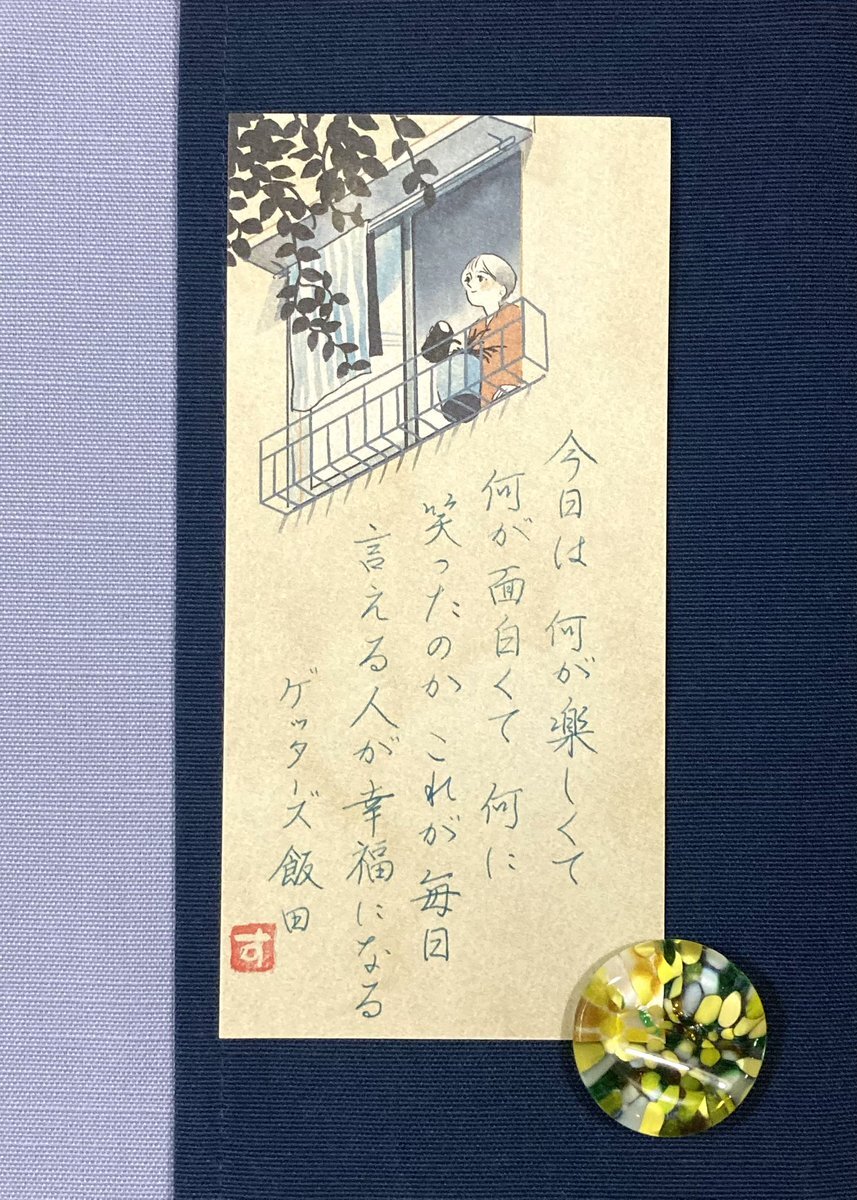 今日は 何が楽しくて
何が面白くて 何に
笑ったのか これが毎日
言える人が幸福になる
ゲッターズ飯田
す